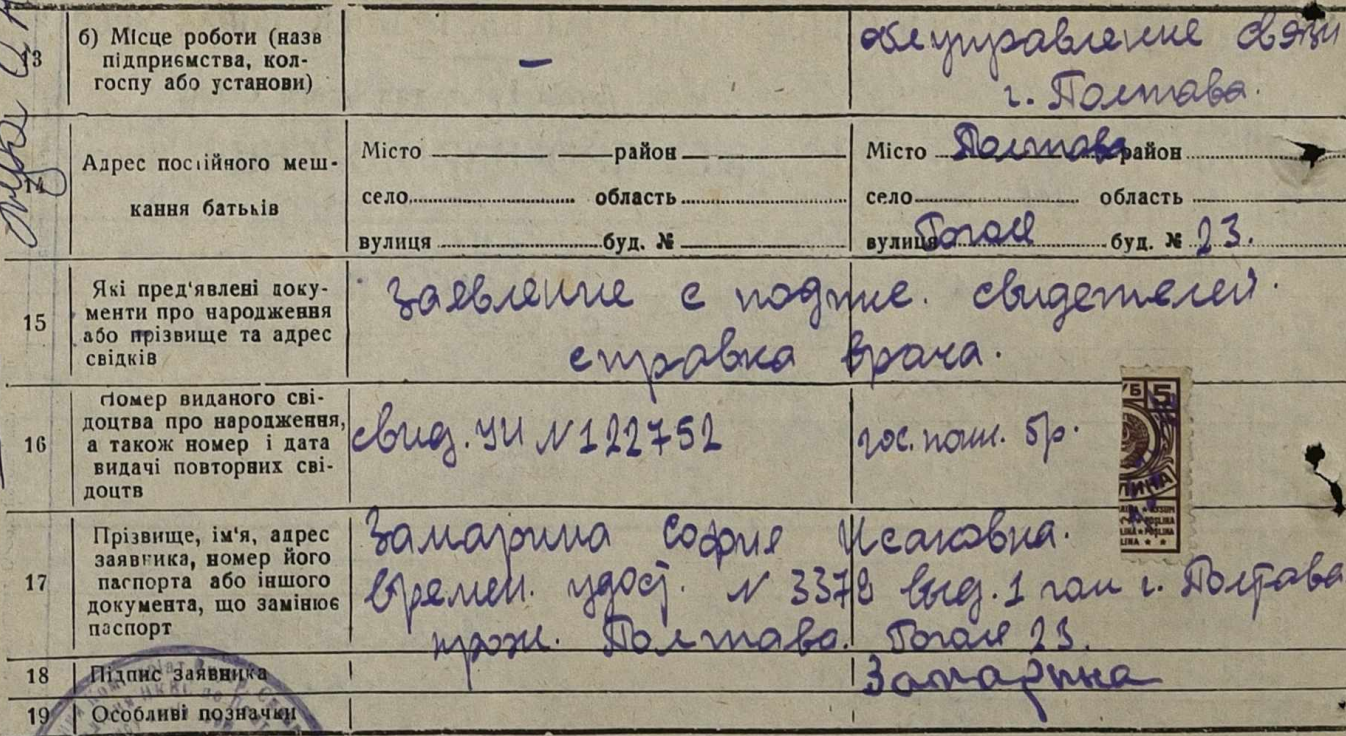 13
б) Місце роботи (назв
підприємства, кол-
госпу або установи)
—
облуправление связи
г. Полтава.
14
Адрес постійного меш-
кання батьків
Місто район
село область
вулиця буд. №
Місто Полтава район
село область
вулиця Гоголя буд. № 23.
15
Які пред'явлені доку-
менти про народження
або прізвище та адрес
свідків
Заявление с подпис. свидетелей.
справка врача.
16
Номер виданого сві-
доцтва про народження,
а також номер і дата
видачі повторних сві-
доцтв
свид. УИ N 122752
гос. пош. 5р.
5
17
Прізвище, ім'я, адрес
заявника, номер його
паспорта або іншого
документа, що замінює
паспорт
Замарина София Исаковна.
времен. удост. N 3379 выд. 1 гом г. Полтава
прож. Полтава. Гоголя 23.
18
Підпис заявника
Замарина
19
Особливі позначки